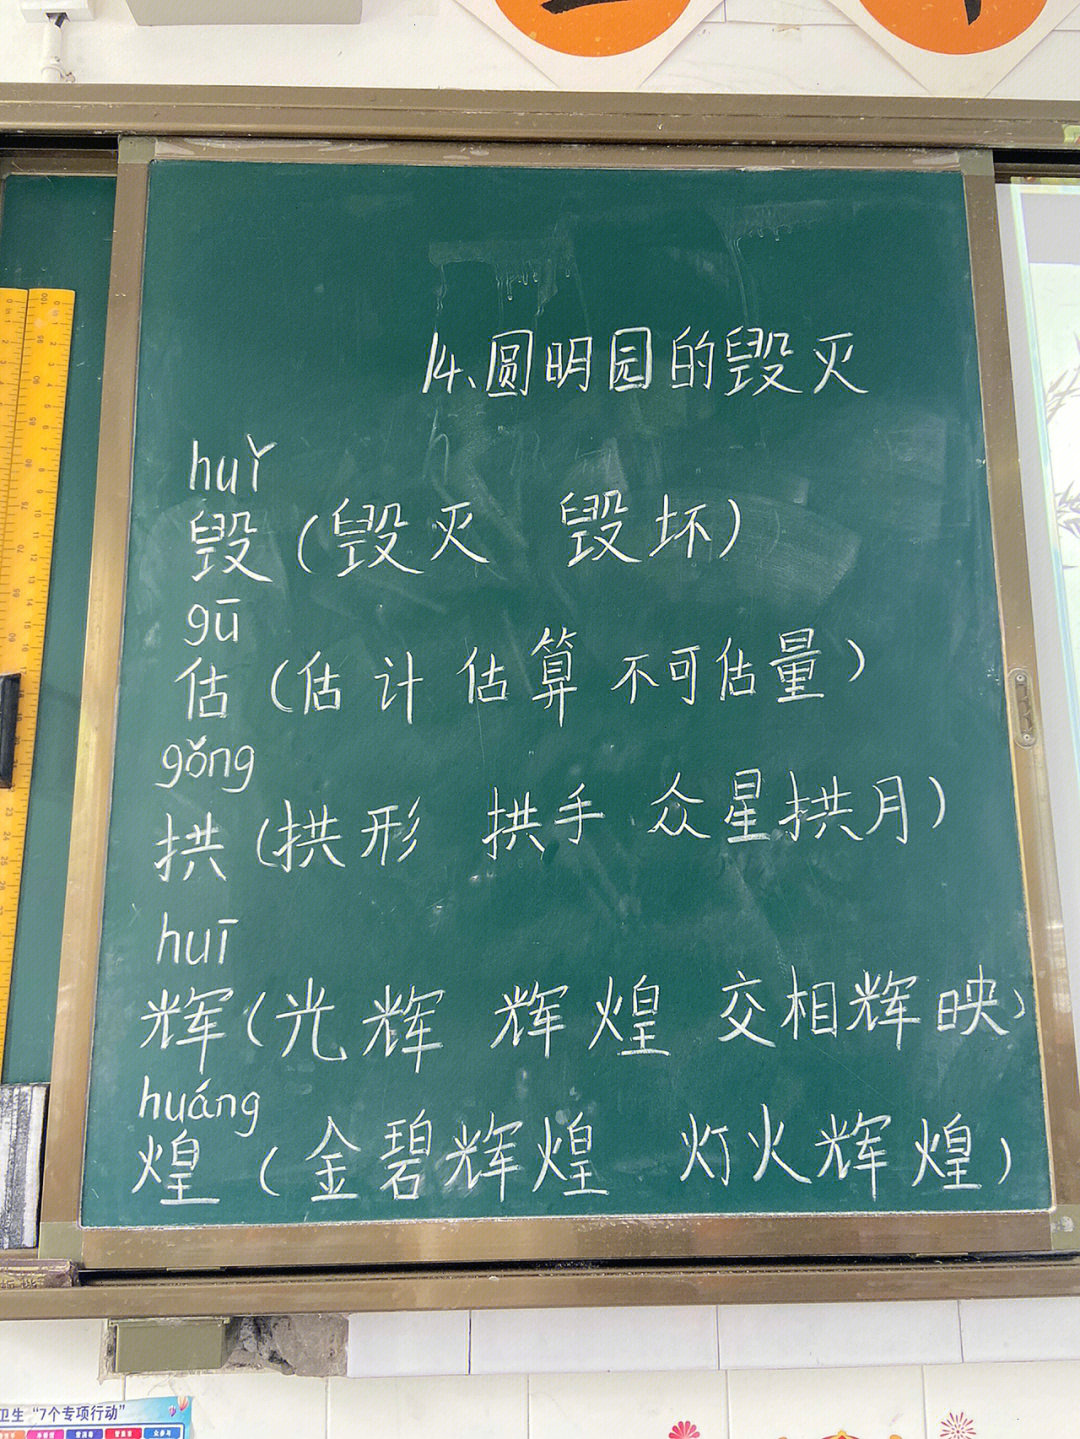 14、圆明园的毁灭
huǐ
毁（毁灭 毁坏）
gū
估（估计 估算 不可估量）
gǒng
拱（拱形 拱手 众星拱月）
huī
辉（光辉 辉煌 交相辉映）
huáng
煌（金碧辉煌 灯火辉煌）
卫生“7个专项行动”